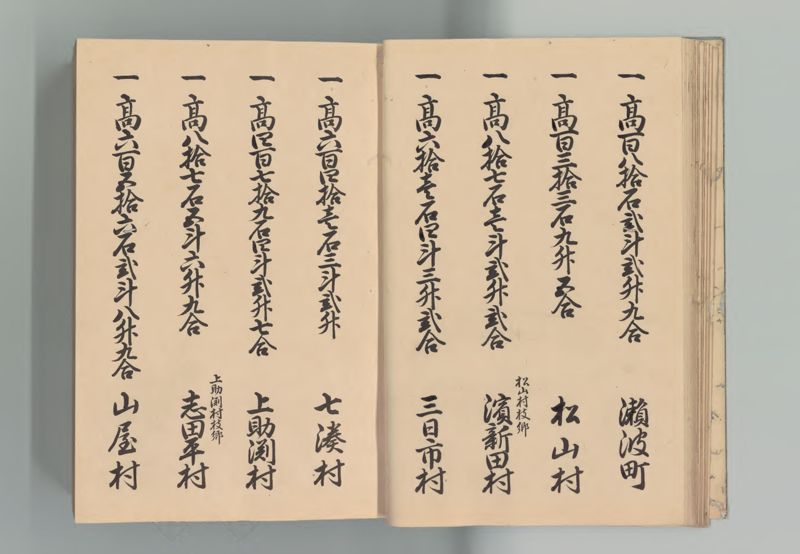 一 高百八拾石弐斗弐升九合 瀬波町
一 高百三拾三石九升五合 松山村
一 高八拾七石壱斗弐升弐合 松山村枝郷 濱新田村
一 高六拾壱石四斗三升弐合 三日市村
一 高六百四拾壱石三斗弐升 七湊村
一 高四百七拾九石四斗弐升七合 上助渕村
一 高八拾七石五斗六升九合 上助渕村枝郷 志田平村
一 高六百五拾六石弐斗八升九合 山屋村